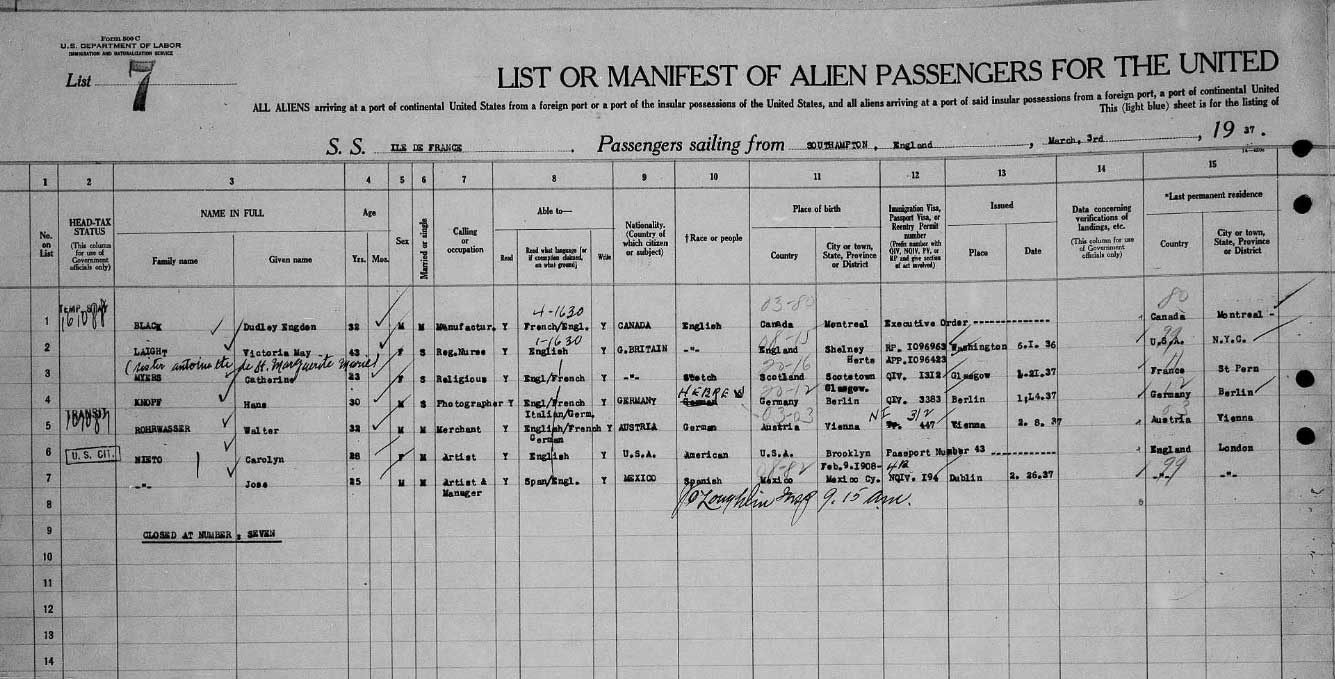 Form 500 C
U.S. DEPARTMENT OF LABOR
IMMIGRATION AND NATURALIZATION SERVICE
List 7
LIST OR MANIFEST OF ALIEN PASSENGERS FOR THE UNITED
ALL ALIENS arriving at a port of continental United States from a foreign port or a port of the insular possessions of the United States, and all aliens arriving at a port of said insular possessions from a foreign port, a port of continental United
This (light blue) sheet is for the listing of
S. S. ILE DE FRANCE , Passengers sailing from SOUTHAMPTON , England , March, 3rd , 19 37 .
1 2 3 4 5 6 7 8 9 10 11 12 13 14 15
No. on List
HEAD-TAX STATUS
(This column for use of Government officials only)
NAME IN FULL
Family name Given name
Age
Yrs. Mos.
Sex
Married or single
Calling or occupation
Able to—
Read Read what language (or if exemption claimed, on what ground) Write
Nationality. (Country of which citizen or subject)
†Race or people
Place of birth
Country City or town, State, Province or District
Immigration Visa, Passport Visa, or Reentry Permit number
(Prefix number with QIV, NQIV, PV, or RP and give section of act involved)
Issued
Place Date
Data concerning verifications of landings, etc.
(This column for use of Government officials only)
*Last permanent residence
Country City or town, State, Province or District
TEMP. STAY 4-1630 03-80 80
1 BLACK Dudley Engden 32 M M Manufactur. Y French/Engl. Y CANADA English Canada Montreal Executive Order Canada Montreal
1-1630 08-15 99
2 LAIGHT Victoria May 43 F S Reg.Nurse Y English Y G.BRITAIN -"- England Shelney Herts RP. I096963 APP.I096423 Washington 6.I. 36 U.S.A. N.Y.C.
(Sister Antoinette de St. Marguerite Marie) 20-16
3 MYERS Catherine 23 F S Religious Y Engl/French Y -"- Scotch Scotland Scotstown Glasgow. QIV. I3I2 Glasgow 1.2I.37 France St Pern
HEBREW 20-12 62
4 KNOPF Hans 30 M S Photographer Y Engl/French Italian/Germ, Y GERMANY German Germany Berlin QIV. 3383 Berlin 1.I4.37 Germany Berlin
TRANSIT 03-03 NI 3/2 03
5 ROHRWASSER Walter 32 M M Merchant Y English/French German Y AUSTRIA German Austria Vienna 447 Vienna 2. 8. 37 Austria Vienna
6 U. S. CIT. NIETO Carolyn 28 F M Artist Y English Y U.S.A. American U.S.A. Brooklyn Feb.9.I908- Passport Number 43 England London
08-82 99
7 -"- Jose 25 M M Artist & Manager Y Span/Engl. Y MEXICO Spanish Mexico Mexico Cy. NQIV. I94 Dublin 2. 26.37 -"- -"-
8 9.15 a.m.
9 CLOSED AT NUMBER : SEVEN
10
11
12
13
14